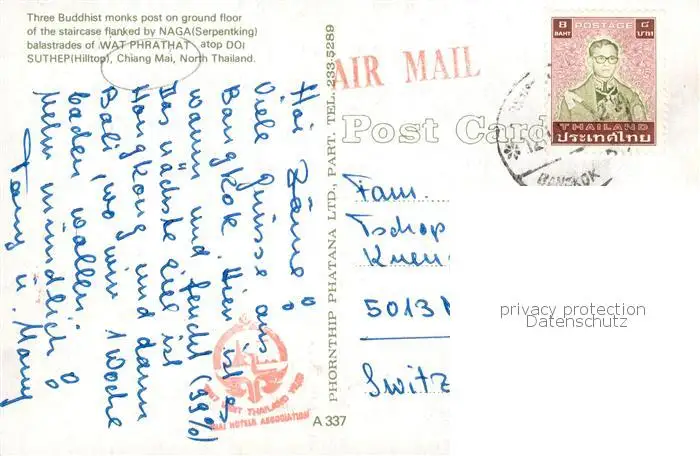 Three Buddhist monks post on ground floor
of the staircase flanked by NAGA(Serpentking)
balastrades of WAT PHRATHAT atop DOI
SUTHEP(Hilltop), Chiang Mai, North Thailand.
Hoi zäme
Viele Grüsse aus
Bangkok. Hier ist es
warm und feucht (99%)
Das nächste Ziel ist
Hongkong und dann
Bali, wo wir 1 Woche
baden wollen
Mehr mündlich
Tony u. Mary
PHORNTHIP PHATANA LTD., PART. TEL. 233-5289
AIR MAIL
Post Card
8 BAHT
POSTAGE
๘ บาท
THAILAND
ประเทศไทย
BANGKOK
Fam.
Tschop
Kuen
5013
Switz
privacy protection
Datenschutz
VISIT THAILAND
THAI HOTELS ASSOCIATION
A 337